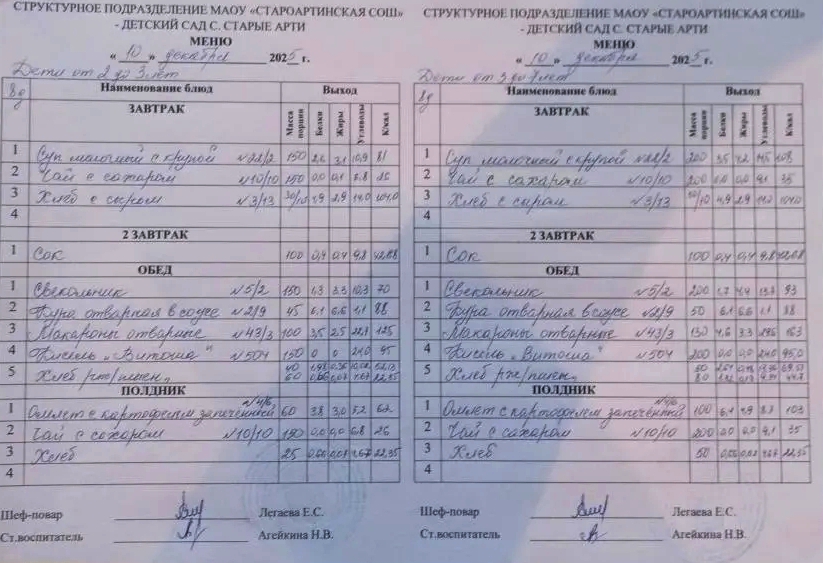 СТРУКТУРНОЕ ПОДРАЗДЕЛЕНИЕ МАОУ «СТАРОАРТИНСКАЯ СОШ»
- ДЕТСКИЙ САД С. СТАРЫЕ АРТИ
МЕНЮ
« 10 » декабря 2025 г.
Дети от 2 до 3 лет
Наименование блюд Выход
ЗАВТРАК Масса порции Белки Жиры Углеводы К/кал
1 Суп молочный с крупой №22/2 150 2,6 3,1 10,9 81
2 Чай с сахаром №10/10 150 0,0 0,1 6.8 26
3 Хлеб с сыром №3/13 30/10 4,9 2,9 14.0 104.0
4
2 ЗАВТРАК
1 Сок 100 0,4 0,4 9.8
ОБЕД
1 Свекольник №5/2 150 1,3 3.3 10,3 70
2 Кура отварная в соусе №2/9 45 6,1 6.6 1,1 88
3 Макароны отварные №43/3 100 3,5 2,5 125
4 Кисель „Витоша" №504 150 0 0 24.0 95
5 Хлеб рж/пшен. 40 60
ПОЛДНИК
1 Омлет с картофелем запечённый №4/6 60 3.8 3,0 62
2 Чай с сахаром №10/10 150 0,0 0,0 6,8 26
3 Хлеб 25 22,35
4
Шеф-повар Легаева Е.С.
Ст.воспитатель Агейкина Н.В.
СТРУКТУРНОЕ ПОДРАЗДЕЛЕНИЕ МАОУ «СТАРОАРТИНСКАЯ СОШ»
- ДЕТСКИЙ САД С. СТАРЫЕ АРТИ
МЕНЮ
« 10 » декабря 2025 г.
Дети от 3 до 7 лет
Наименование блюд Выход
ЗАВТРАК Масса порции Белки Жиры Углеводы К/кал
1 Суп молочный с крупой №22/2 200 3,5 4,2 14,5 108
2 Чай с сахаром №10/10 200 0,0 0,0 9,1 35
3 Хлеб с сыром №3/13 30/10 4,9 2,9 14.0 104.0
4
2 ЗАВТРАК
1 Сок 100 0,4 0,4 9.8
ОБЕД
1 Свекольник №5/2 200 1,7 4,4 93
2 Кура отварная в соусе №2/9 50 6,1 6,6 1,1 88
3 Макароны отварные №43/3 130 4,6 3.3 163
4 Кисель „Витоша" №504 200 0,0 0,0 24,0 95,0
5 Хлеб рж/пшен. 50 80
ПОЛДНИК
1 Омлет с картофелем запечённый №4/6 100 6,1 4,9 103
2 Чай с сахаром №10/10 200 0,0 0,0 9,1 35
3 Хлеб 50 22,35
4
Шеф-повар Легаева Е.С.
Ст.воспитатель Агейкина Н.В.